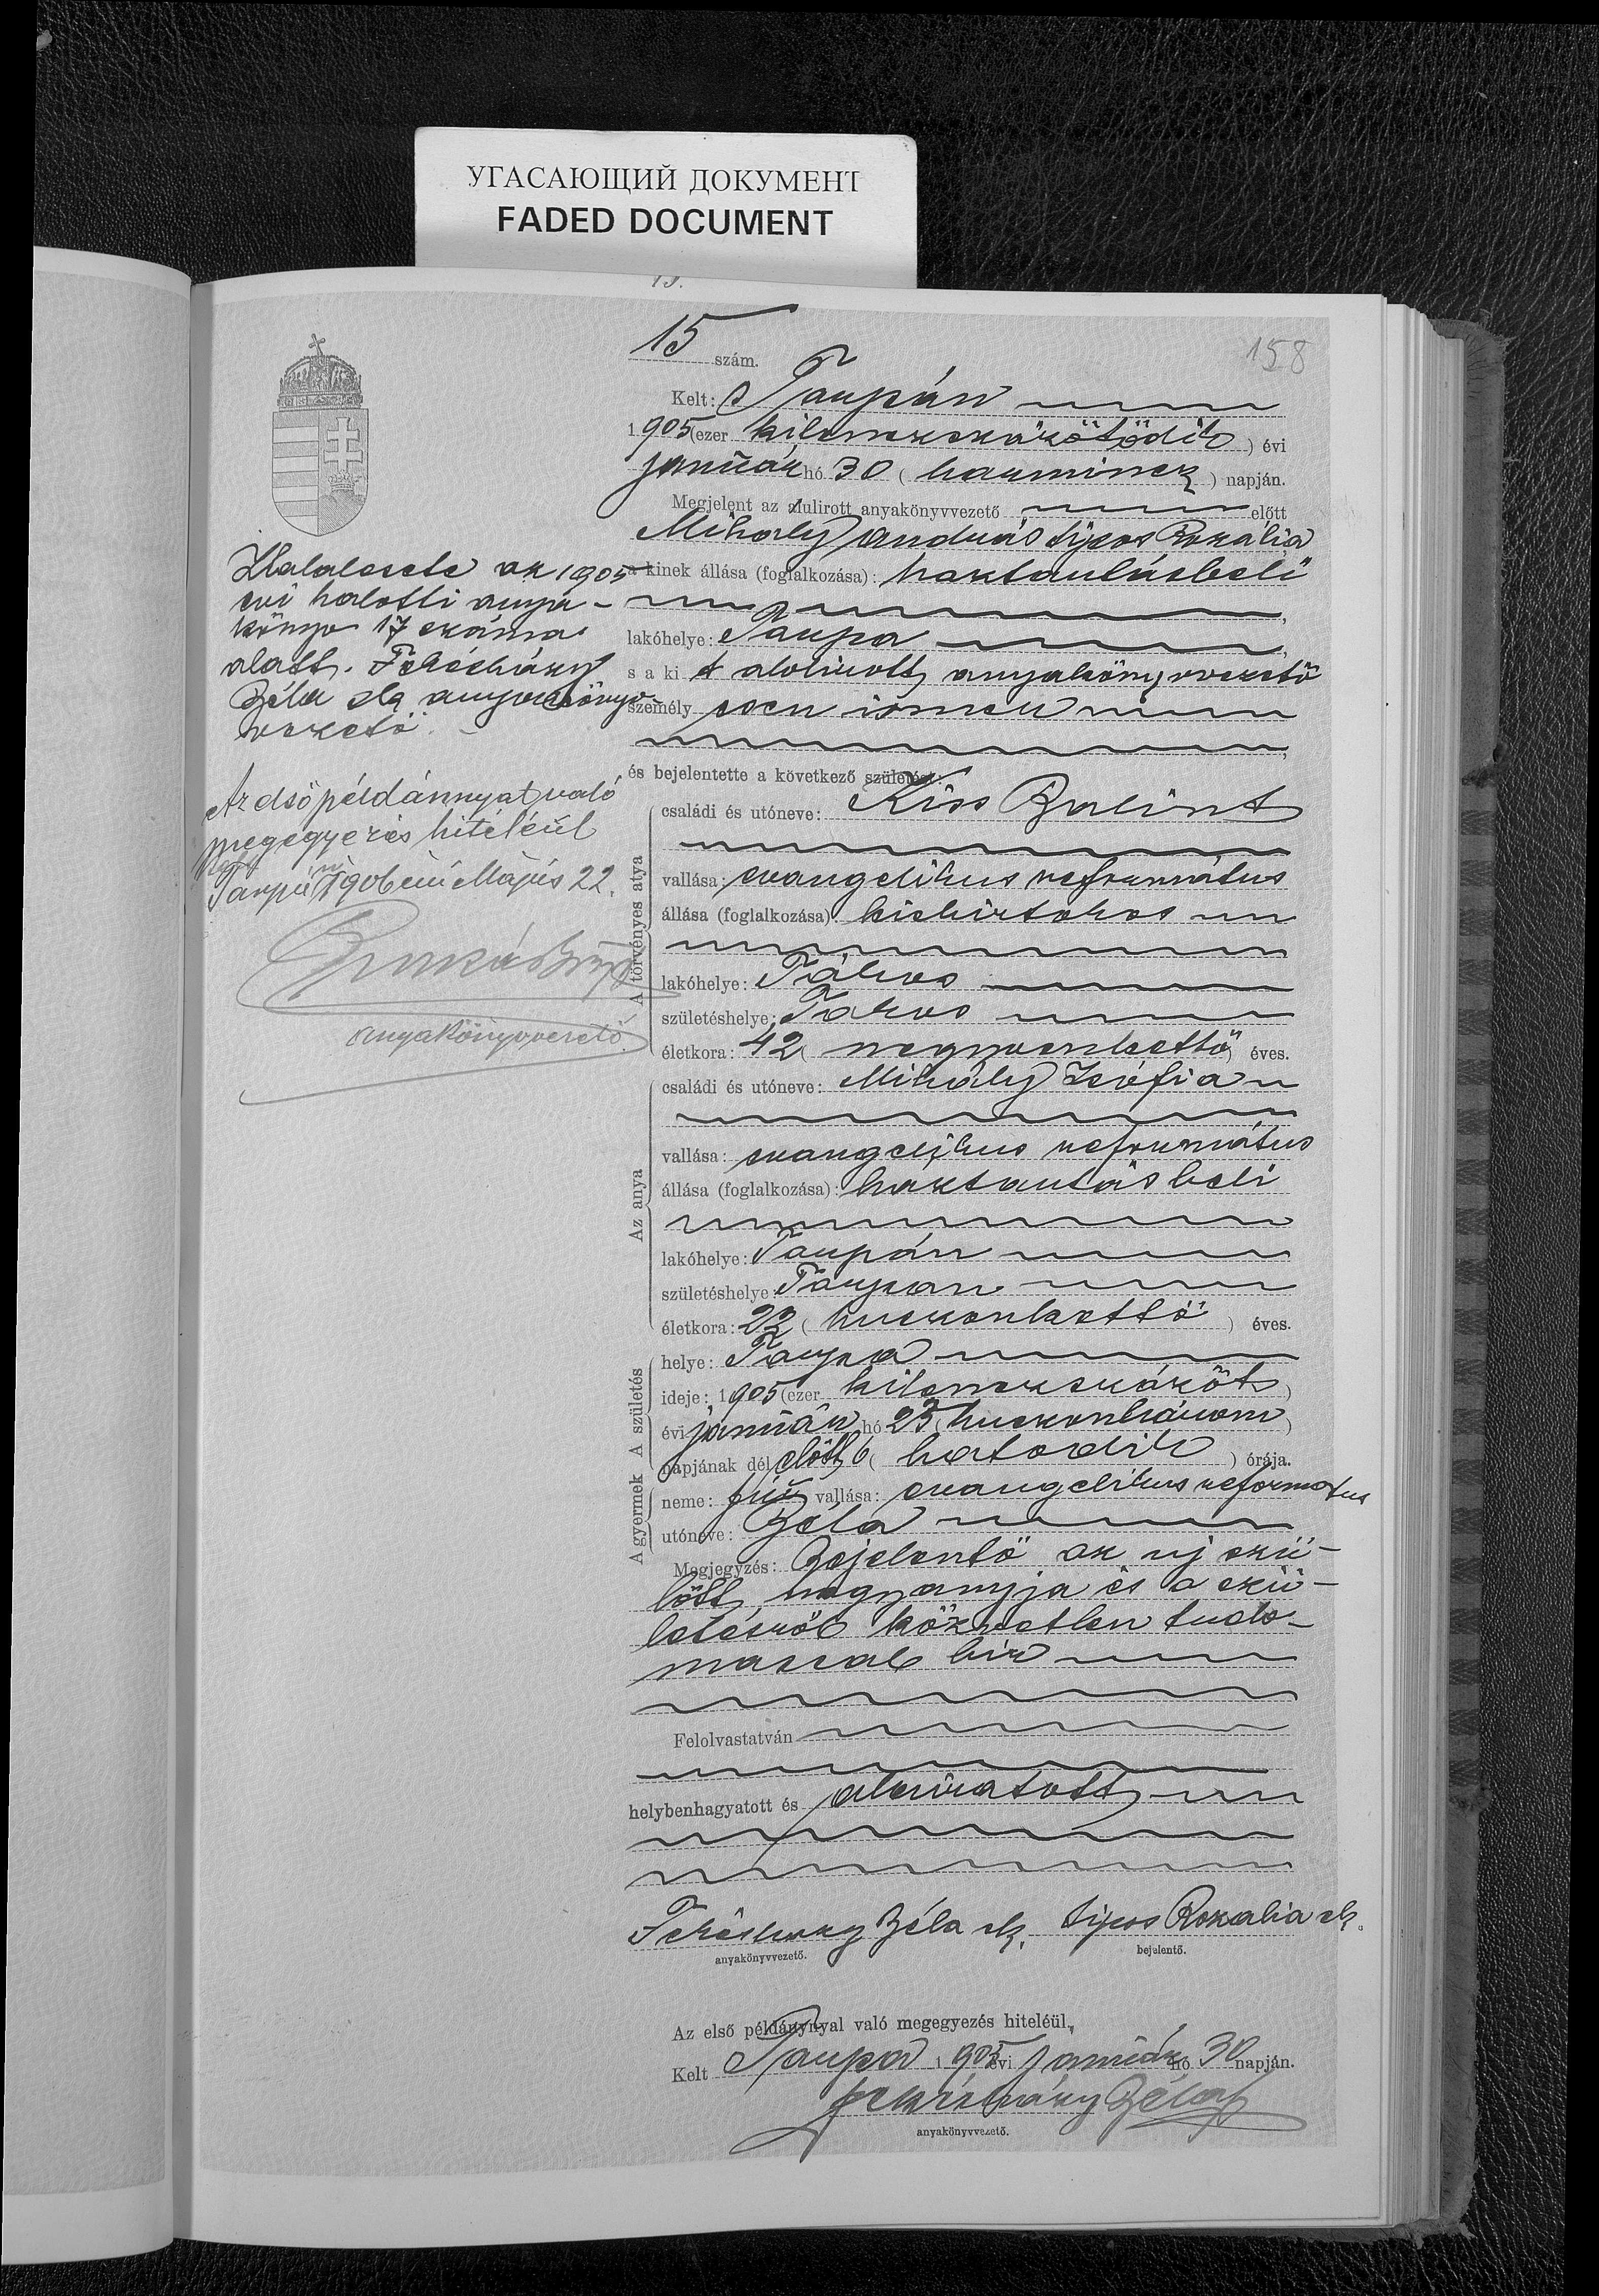 УГАСАЮЩИЙ ДОКУМЕНТ
FADED DOCUMENT
15.
158
15 szám.
Kelt: Tarpán
1905 (ezer kilenczszázötödik) évi
január hó 30 (harmincz) napján.
Megjelent az alulirott anyakönyvvezető előtt
Mihaly András Sipos Rozália
a kinek állása (foglalkozása): haztartásbeli
lakóhelye: Tarpa
s a ki t alolirott anyakönyvvezető
személy esen ismer
és bejelentette a következő születést:
A törvényes atya
családi és utóneve: Kiss Balint
vallása: evangelikus református
állása (foglalkozása): kisbirtokos
lakóhelye: Tákos
születéshelye: Takos
életkora: 42 (negyvenkettő) éves.
Az anya
családi és utóneve: Mihály Zsófia
vallása: evangelikus református
állása (foglalkozása): haztartásbeli
lakóhelye: Tarpán
születéshelye: Tarpan
életkora: 22 (huszonkettő) éves.
A gyermek A születés
helye: Tarpa
ideje: 1905 (ezer kilenczszázöt)
évi január hó 23 (huszonhárom)
napjának dél előtt 6 (hatodik) órája.
neme: fiú vallása: evangelikus reformatus
utóneve: Béla
Megjegyzés: Bejelentő az uj szü-
lött nagyanyja és a szü-
letésről közvetlen tudo-
massal bir
Felolvastatván
helybenhagyatott és aláiratott
Fehérháry Béla sk. Sipos Rozalia sk.
anyakönyvvezető. bejelentő.
Az első példánynyal való megegyezés hiteléül,
Kelt Tarpa 1905 évi január hó 30 napján.
Béla
anyakönyvvezető.
Halalesete az 1905
evi halotti anya-
könyv 17 száma
alatt. Fehérháry
Béla sk anyakönyv-
vezető.
Az első példánnyal való
megegyezés hiteléül
Tarpán 1906 évi Május 22.
anyakönyvvezető.